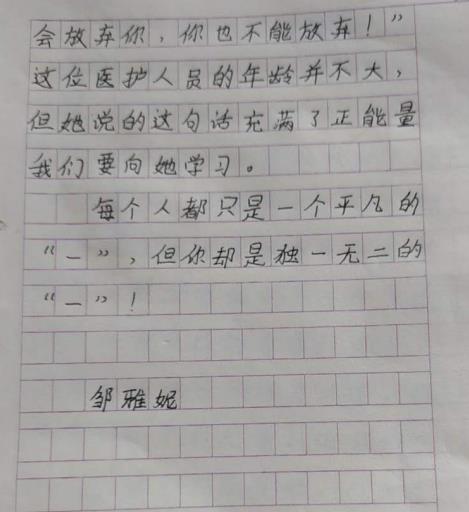 会放弃你，你也不能放弃！”
这位医护人员的年龄并不大，
但她说的这句话充满了正能量
我们要向她学习。
每个人都只是一个平凡的
“一”，但你却是独一无二的
“一”！
邹雅妮